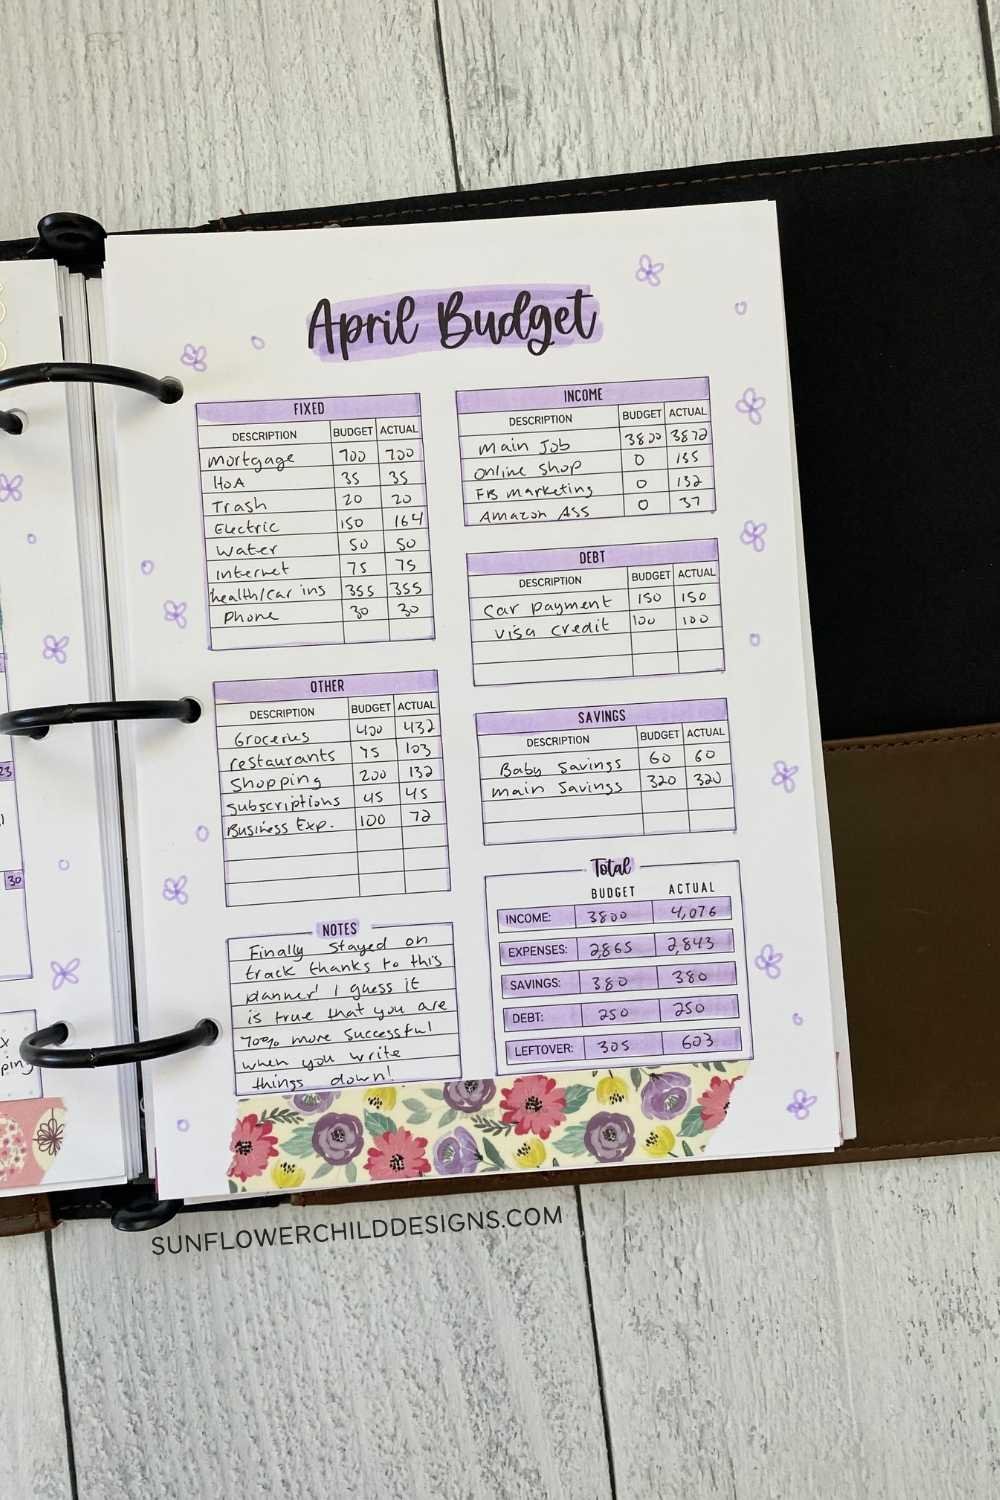 April Budget
FIXED
DESCRIPTION BUDGET ACTUAL
Mortgage 700 700
HOA 35 35
Trash 20 20
Electric 150 164
Water 50 50
Internet 75 75
health/car ins 355 355
Phone 30 30
INCOME
DESCRIPTION BUDGET ACTUAL
Main Job 3800 3872
online shop 0 135
FB Marketing 0 132
Amazon Ass 0 37
DEBT
DESCRIPTION BUDGET ACTUAL
Car payment 150 150
Visa credit 100 100
OTHER
DESCRIPTION BUDGET ACTUAL
Groceries 400 432
restaurants 75 103
Shopping 200 132
Subscriptions 45 45
Business Exp. 100 72
SAVINGS
DESCRIPTION BUDGET ACTUAL
Baby Savings 60 60
main Savings 320 320
NOTES
Finally stayed on
track thanks to this
planner! I guess it
is true that you are
70% more successful
when you write
things down!
Total
BUDGET ACTUAL
INCOME: 3800 4,076
EXPENSES: 2,865 2,843
SAVINGS: 380 380
DEBT: 250 250
LEFTOVER: 305 603
23
30
SUNFLOWERCHILDDESIGNS.COM